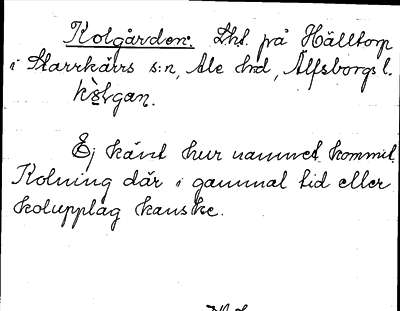 Kolgården: Lht. på Hälltorp
i Starrkärrs s:n, Ale hd, Älfsborgs l.
Ej känt hur namnet kommit.
Kolning där i gammal tid eller
kolupplag kanske.